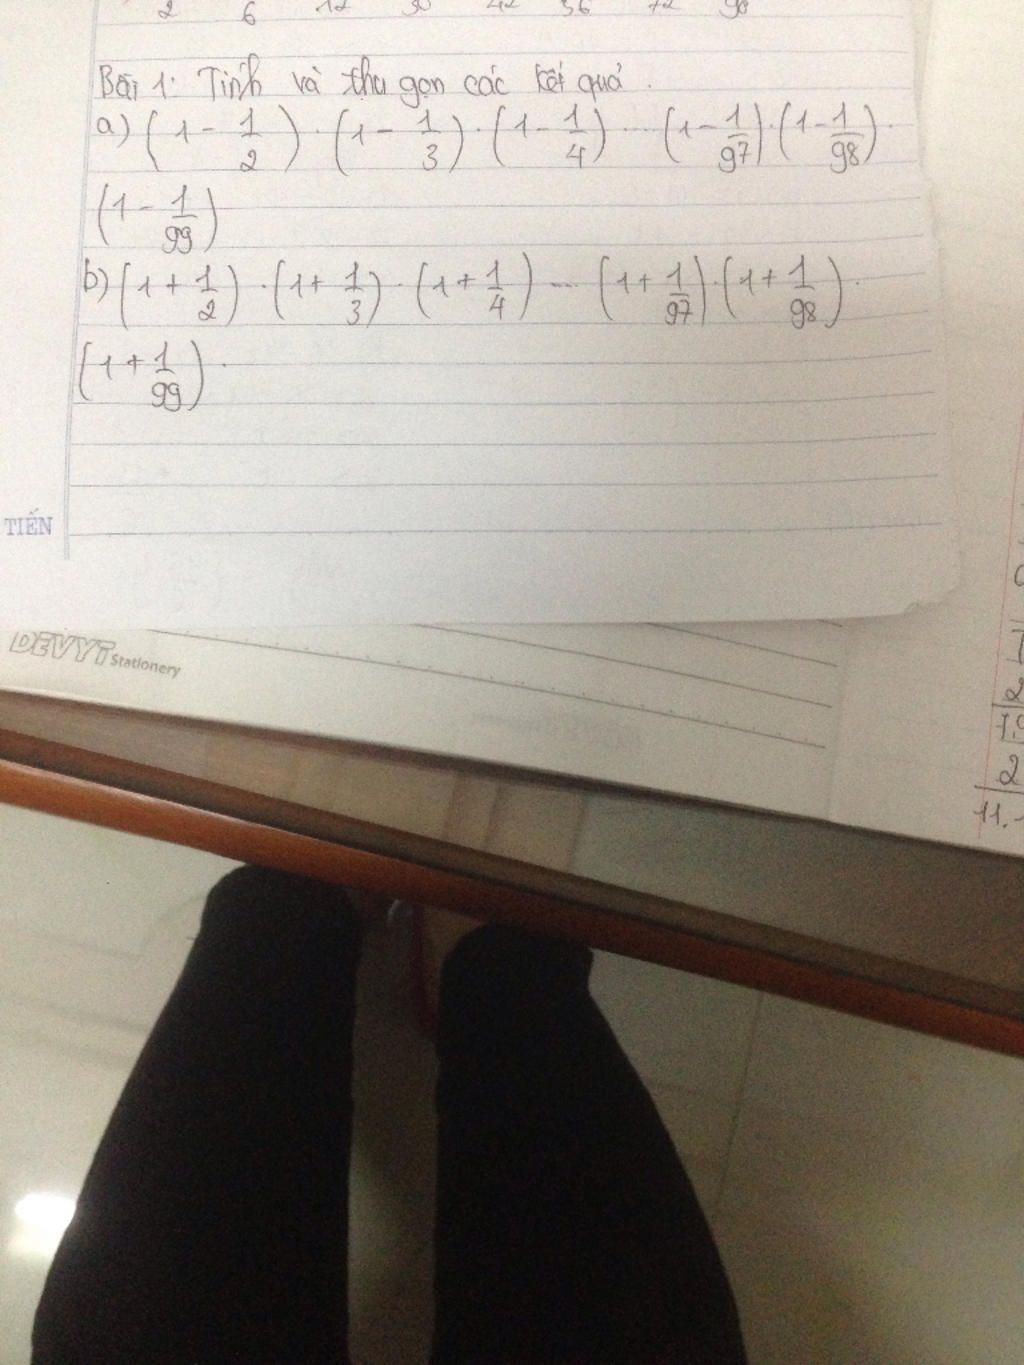 2 6 12 30 42 56 72 90
Bài 1: Tính và thu gọn các kết quả.
a) (1 - 1/2) . (1 - 1/3) . (1 - 1/4) ... (1 - 1/97) . (1 - 1/98) .
(1 - 1/99)
b) (1 + 1/2) . (1 + 1/3) . (1 + 1/4) ... (1 + 1/97) . (1 + 1/98) .
(1 + 1/99) .
TIẾN
DEVYT Stationery
2
2
11.